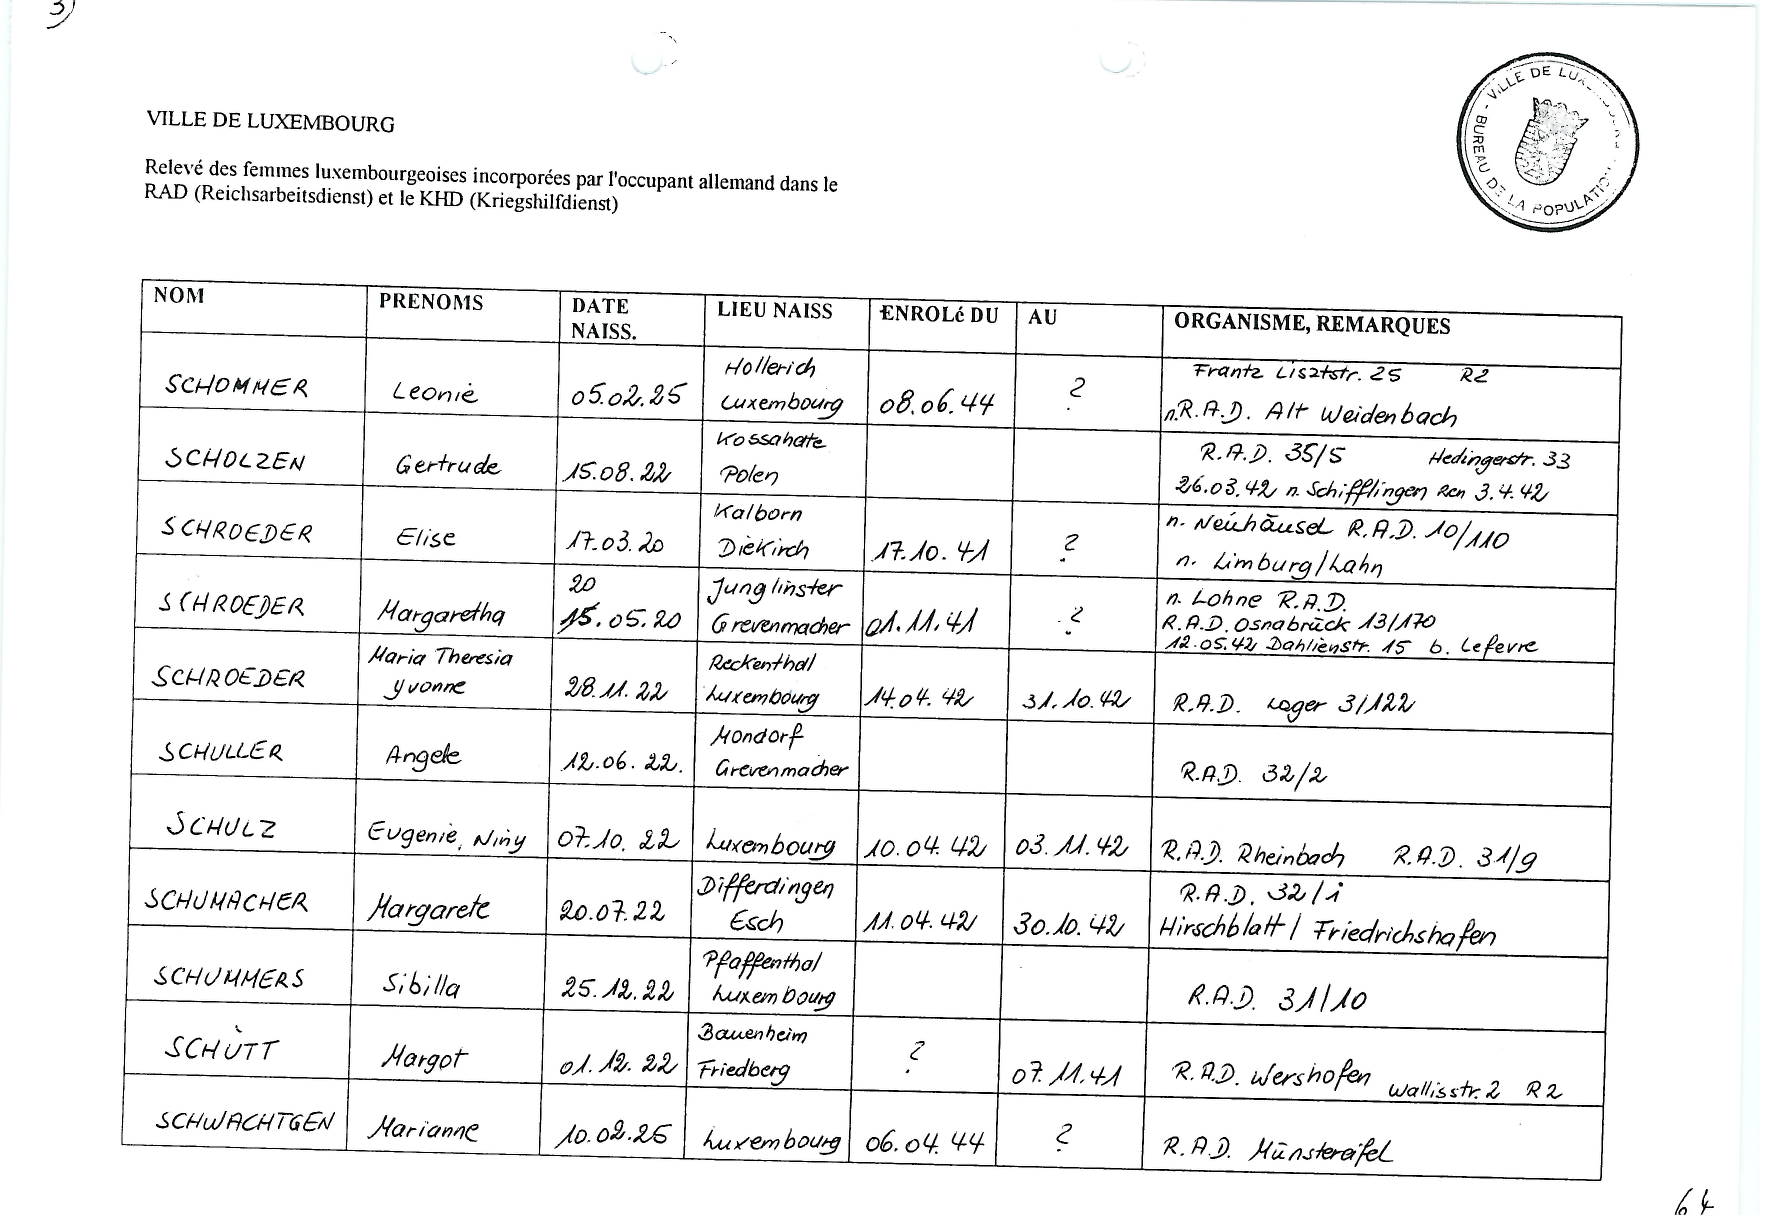 3)
VILLE DE LUXEMBOURG
Relevé des femmes luxembourgeoises incorporées par l'occupant allemand dans le
RAD (Reichsarbeitsdienst) et le KHD (Kriegshilfdienst)
- VILLE DE LUXEMBOURG - BUREAU DE LA POPULATION
NOM PRENOMS DATE NAISS. LIEU NAISS ENROLé DU AU ORGANISME, REMARQUES
Hollerich Frantz Lisztstr. 25 R2
SCHOMMER Leonie 05.02.25 Luxembourg 08.06.44 ? n.R.A.D. Alt Weidenbach
Kossahate R.A.D. 35/5 Hedingerstr. 33
SCHOLZEN Gertrude 15.08.22 Polen 26.03.42 n. Schifflingen 3.4.42
Kalborn n. Neuhäusel R.A.D. 10/110
SCHROEDER Elise 17.03.20 Diekirch 17.10.41 ? n. Limburg/Lahn
20 Junglinster n. Lohne R.A.D.
SCHROEDER Margaretha 15.05.20 Grevenmacher 01.11.41 ? R.A.D. Osnabrück 13/170
12.05.42 Dahlienstr. 15 b. Lefevre
Maria Theresia Reckenthal
SCHROEDER Yvonne 28.11.22 Luxembourg 14.04.42 31.10.42 R.A.D. Lager 3/122
Mondorf
SCHULLER Angele 12.06.22. Grevenmacher R.A.D. 32/2
SCHULZ Eugenie, Niny 07.10.22 Luxembourg 10.04.42 03.11.42 R.A.D. Rheinbach R.A.D. 31/9
Differdingen R.A.D. 32/i
SCHUMACHER Margarete 20.07.22 Esch 11.04.42 30.10.42 Hirschblatt / Friedrichshafen
Pfaffenthal
SCHUMMERS Sibilla 25.12.22 Luxembourg R.A.D. 31/10
Bauenheim
SCHÜTT Margot 01.12.22 Friedberg ? 07.11.41 R.A.D. Wershofen Wallisstr. 2 R2
SCHWACHTGEN Marianne 10.02.25 Luxembourg 06.04.44 ? R.A.D. Münstereifel
64